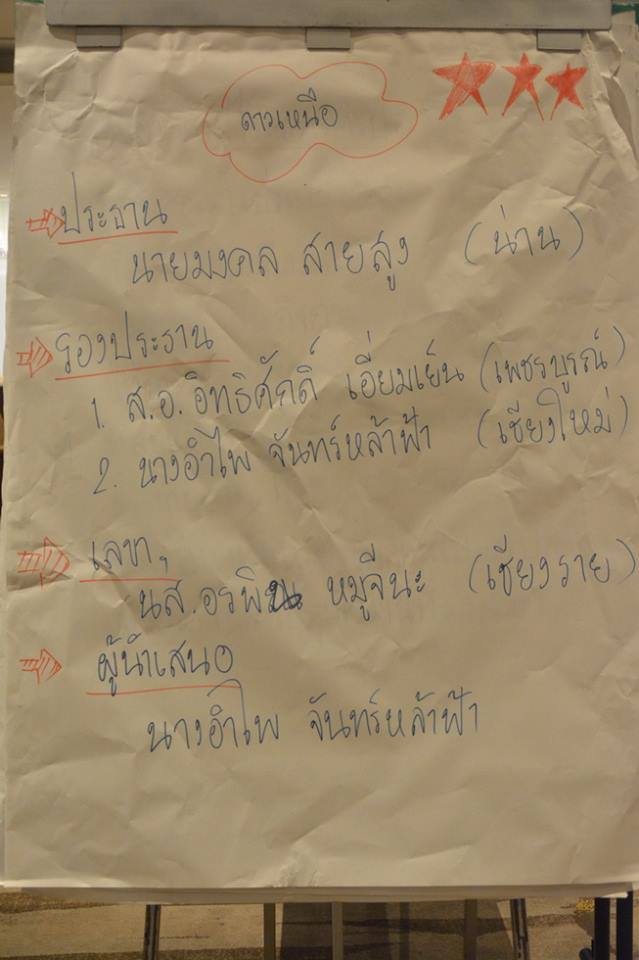 ดาวเหนือ
ประธาน
นายมงคล สายสูง (น่าน)
รองประธาน
1. ส.อ.อิทธิศักดิ์ เอี่ยมเย็น (เพชรบูรณ์)
2. นางอำไพ จันทร์หล้าฟ้า (เชียงใหม่)
เลขาฯ
นส.อรพิน หมูจีนะ (เชียงราย)
ผู้นำเสนอ
นางอำไพ จันทร์หล้าฟ้า